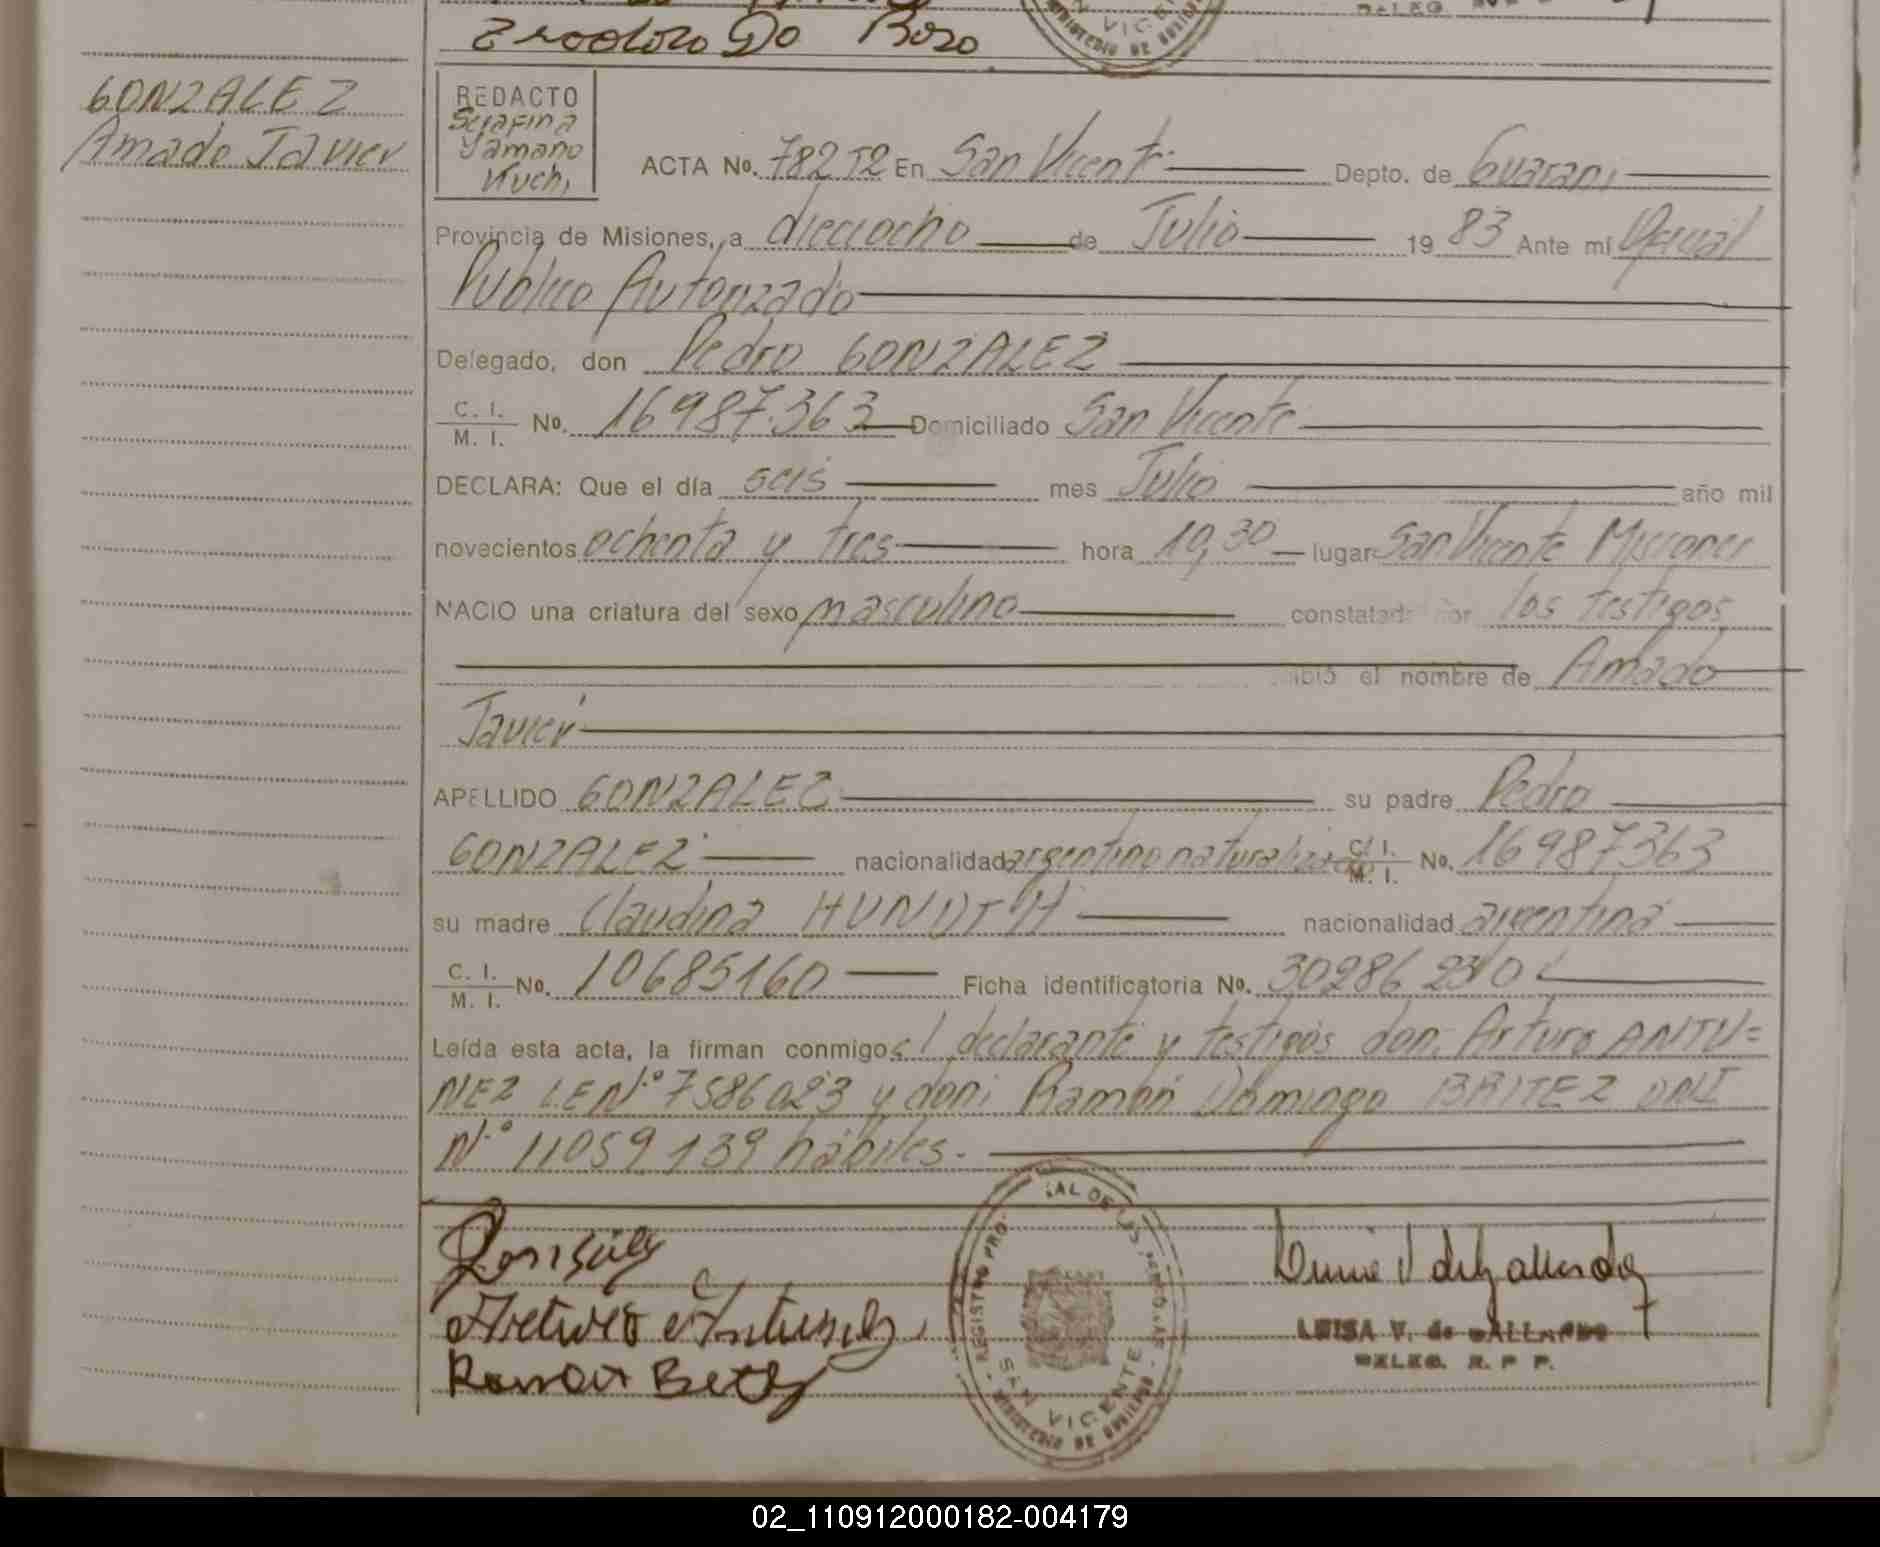 Do Boso
GONZALEZ
Amado Javier
REDACTO
Serafina
Yamano
Kuchi
ACTA No. 782 T2 En San Vicente Depto. de Guarani
Provincia de Misiones, a dieciocho de Julio 1983 Ante mí Oficial
Público Autorizado
Delegado, don Pedro GONZALEZ
C. I.
M. I. No. 16987.363 Domiciliado San Vicente
DECLARA: Que el día seis mes Julio año mil
novecientos ochenta y tres hora 19,30 lugar San Vicente Misiones
NACIO una criatura del sexo masculino constatad por los testigos
el nombre de Amado
Javier
APELLIDO GONZALEZ su padre Pedro
GONZALEZ nacionalidad argentino naturalizado C. I. M. I. No. 16987363
su madre Claudina nacionalidad argentina
C. I.
M. I. No. 10685160 Ficha identificatoria No.
Leída esta acta, la firman conmigo el declarante y testigos don: Arturo ANTU=
NEZ LE N.º 7586023 y don: Ramón Domingo BRITEZ DNI
N.º 11059139 hábiles.-
Arturo Antunez
REGISTRO PRO AL DE LAS PERSONAS
SAN VICENTE
MINISTERIO DE GOBIERNO
LUISA V. de GALLARDO
DELEG. R. P P.
02_110912000182-004179